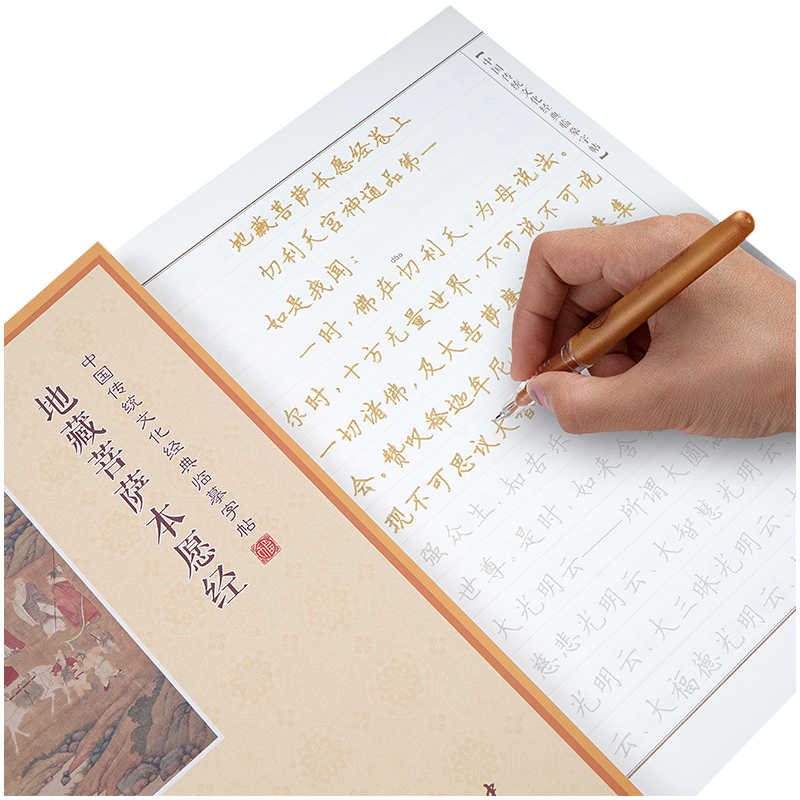 【中国传统文化经典临摹字帖】
地藏菩萨本愿经卷上
忉利天宫神通品第一
如是我闻:
dāo
一时,佛在忉利天,为母说法。
尔时,十方无量世界,不可说不可说
一切诸佛,及大菩萨摩 来集
会。赞叹释迦牟尼
现不可思议大智
强众生,知苦乐
世尊。是时,如来含
大光明云——所谓大圆
慈悲光明云、大智慧光明云、
光明云、大三昧光明云、
云、大福德光明云、
中国传统文化经典临摹字帖
地藏菩萨本愿经